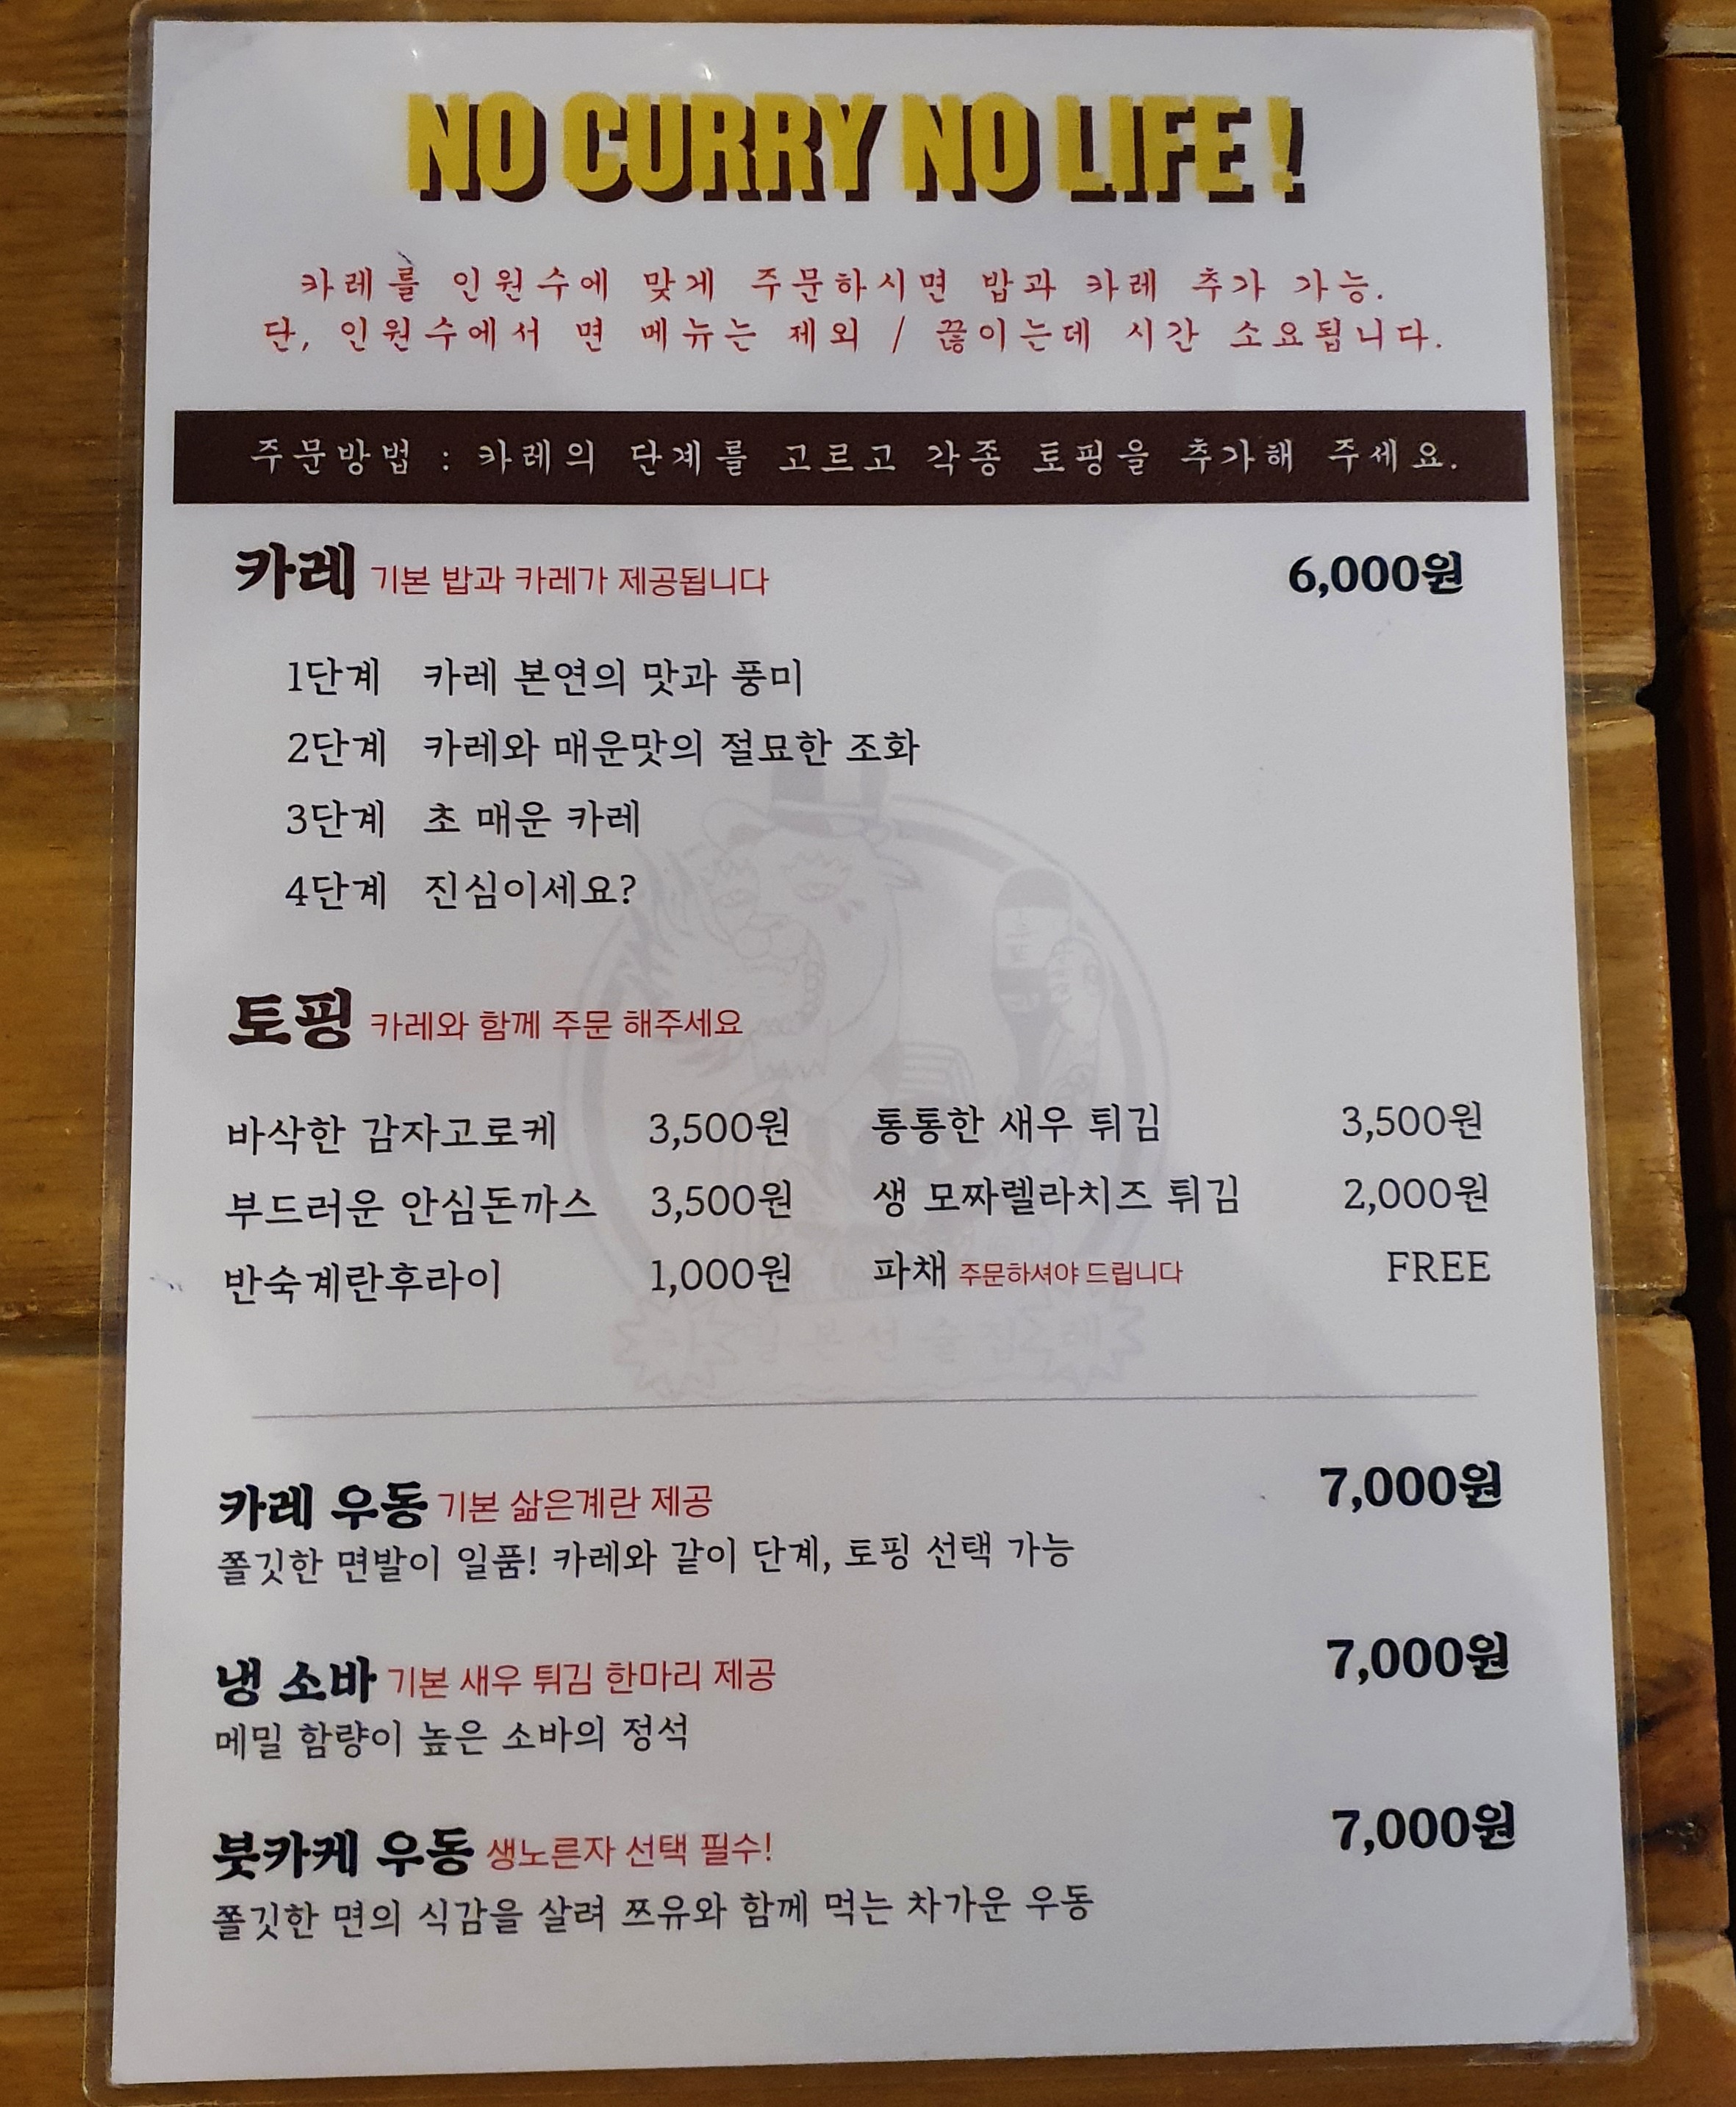 NO CURRY NO LIFE !
카레를 인원수에 맞게 주문하시면 밥과 카레 추가 가능.
단, 인원수에서 면 메뉴는 제외 / 끓이는데 시간 소요됩니다.
주문방법 : 카레의 단계를 고르고 각종 토핑을 추가해 주세요.
카레 기본 밥과 카레가 제공됩니다 6,000원
1단계 카레 본연의 맛과 풍미
2단계 카레와 매운맛의 절묘한 조화
3단계 초 매운 카레
4단계 진심이세요?
토핑 카레와 함께 주문 해주세요
바삭한 감자고로케 3,500원 통통한 새우 튀김 3,500원
부드러운 안심돈까스 3,500원 생 모짜렐라치즈 튀김 2,000원
반숙계란후라이 1,000원 파채 주문하셔야 드립니다 FREE
카레 우동 기본 삶은계란 제공 7,000원
쫄깃한 면발이 일품! 카레와 같이 단계, 토핑 선택 가능
냉 소바 기본 새우 튀김 한마리 제공 7,000원
메밀 함량이 높은 소바의 정석
붓카케 우동 생노른자 선택 필수! 7,000원
쫄깃한 면의 식감을 살려 쯔유와 함께 먹는 차가운 우동